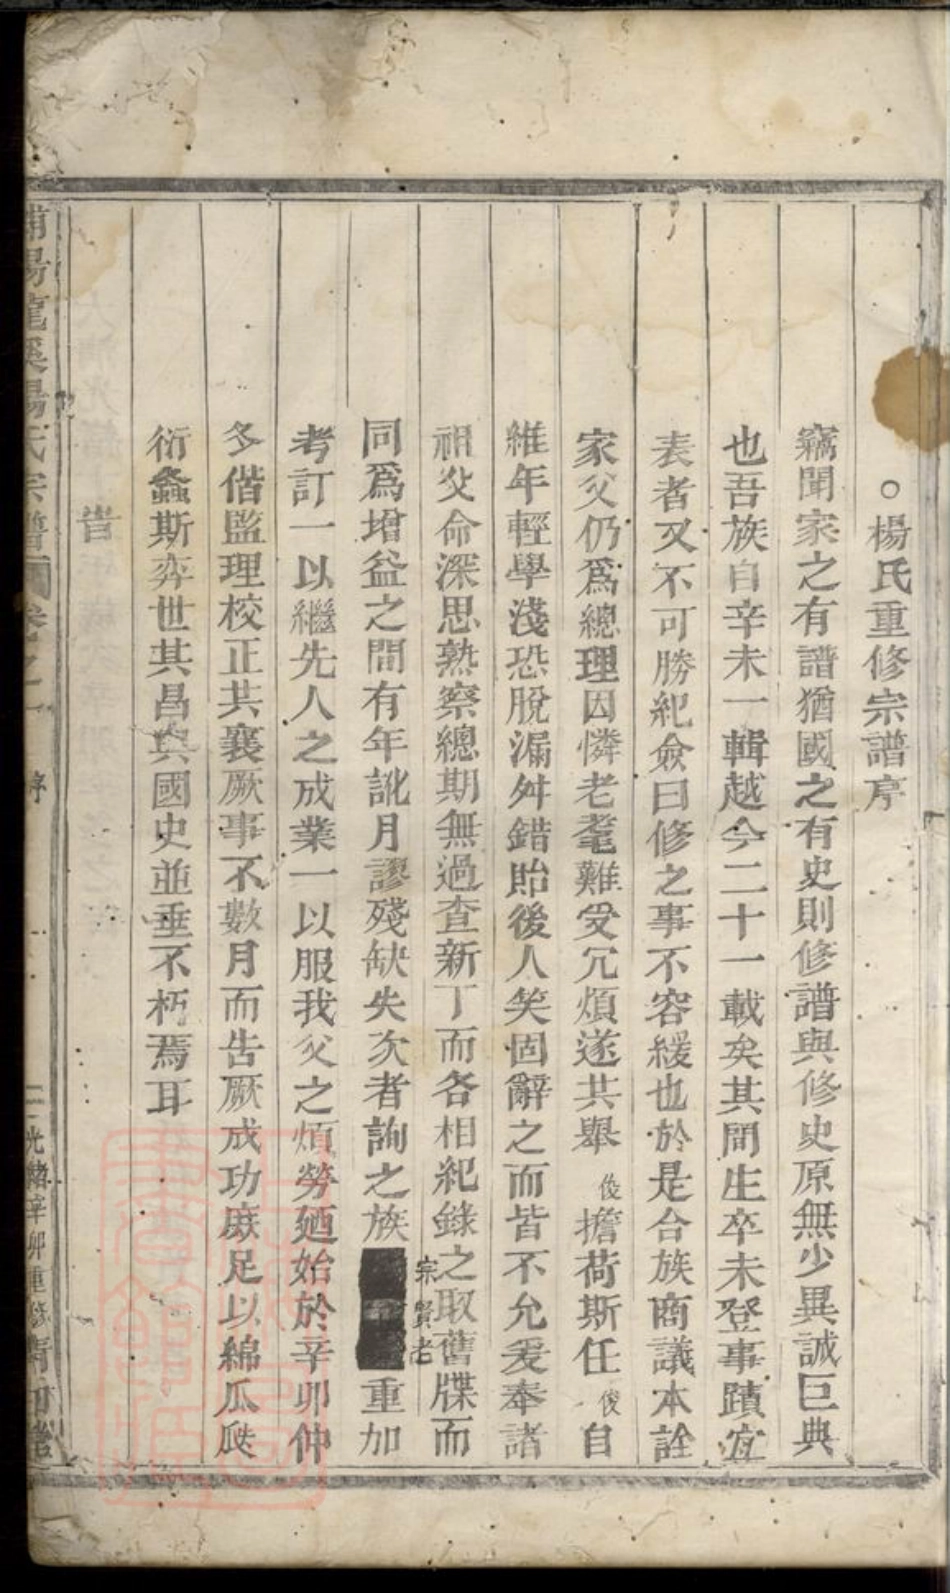 ○楊氏重修宗譜序
竊聞家之有譜猶國之有史則修譜與修史原無少異誠巨典
也吾族自辛未一輯越今二十一載矣其間生卒未登事蹟宜
表者又不可勝紀僉曰修之事不容緩也於是合族商議本詮
家父仍爲總理因憐老耄難受冗煩遂共舉俊擔荷斯任俊自
維年輕學淺恐脫漏舛錯貽後人笑固辭之而皆不允爰奉諸
祖父命深思熟察總期無過查新丁而各相紀錄之取舊牒而
同爲增益之間有年訛月謬殘缺失次者詢之族重加
宗賢者
考訂一以繼先人之成業一以服我父之煩勞廼始於辛卯仲
冬偕監理校正共襄厥事不數月而告厥成功庶足以綿瓜瓞
衍螽斯奕世其昌與國史並垂不朽焉耳
浦陽龍溪楊氏宗譜 卷之一 序 二 光緒辛卯重修